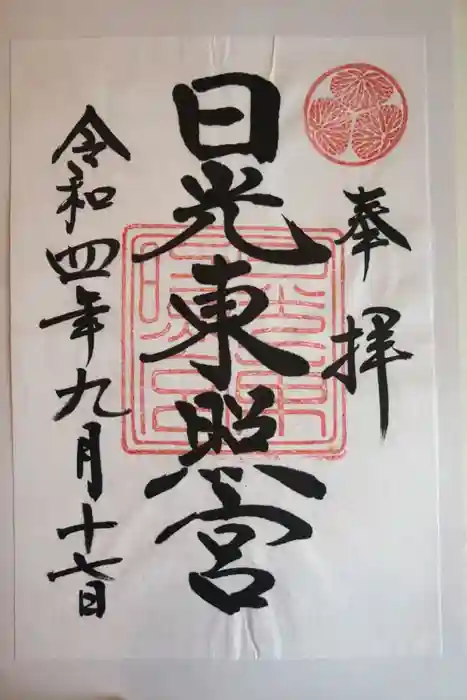 奉拝
日光東照宮
令和四年九月十七日